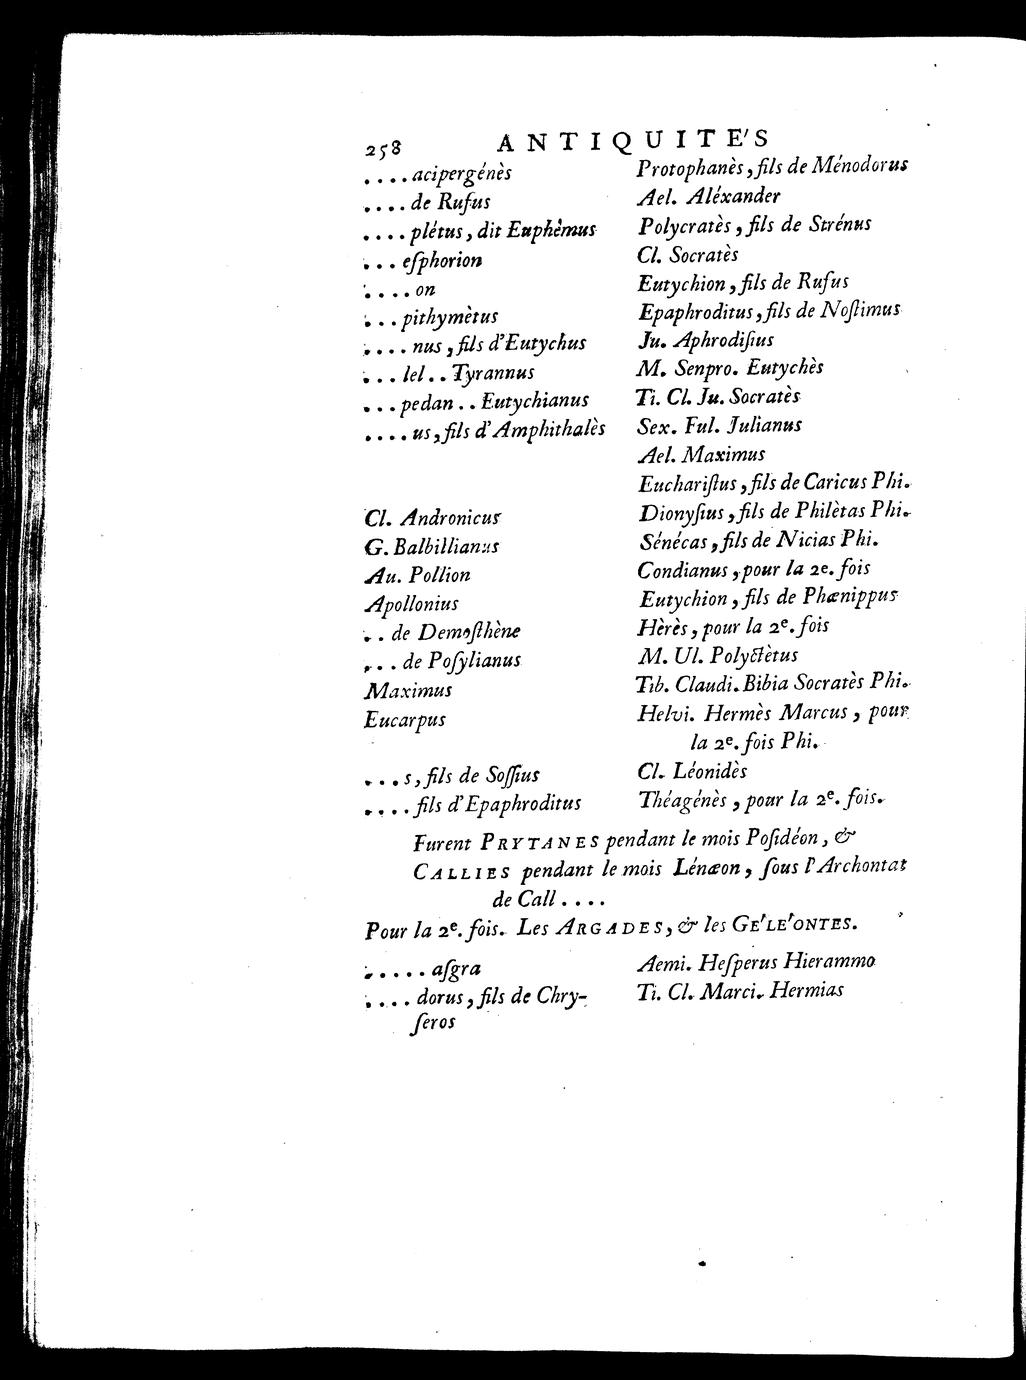 258 ANTIQUITE'S
.... acipergénès
.... de Rufus
.... plétus, dit Euphèmus
... eſphorion
.... on
... pithymètus
.... nus, fils d'Eutychus
... lel .. Tyrannus
... pedan .. Eutychianus
.... us, fils d'Amphithalès
Cl. Andronicus
G. Balbillianus
Au. Pollion
Apollonius
.. de Demoſthène
... de Poſylianus
Maximus
Eucarpus
... s, fils de Soſſius
.... fils d'Epaphroditus
Protophanès, fils de Ménodorus
Ael. Aléxander
Polycratès, fils de Strénus
Cl. Socratès
Eutychion, fils de Rufus
Epaphroditus, fils de Noſtimus
Ju. Aphrodiſius
M. Senpro. Eutychès
Ti. Cl. Ju. Socratès
Sex. Ful. Julianus
Ael. Maximus
Euchariſtus, fils de Caricus Phi.
Dionyſius, fils de Philètas Phi.
Sénécas, fils de Nicias Phi.
Condianus, pour la 2e. fois
Eutychion, fils de Phœnippus
Hèrès, pour la 2e. fois
M. Ul. Polyctètus
Tib. Claudi. Bibia Socratès Phi.
Helvi. Hermès Marcus, pour
la 2e. fois Phi.
Cl. Léonidès
Théagénès, pour la 2e. fois.
Furent PRYTANES pendant le mois Poſidéon, &
CALLIES pendant le mois Lénæon, ſous l'Archontat
de Call ....
Pour la 2e. fois. Les ARGADES, & les GE'LE'ONTES.
..... aſgra
.... dorus, fils de Chry-
ſeros
Aemi. Heſperus Hierammo
Ti. Cl. Marci. Hermias